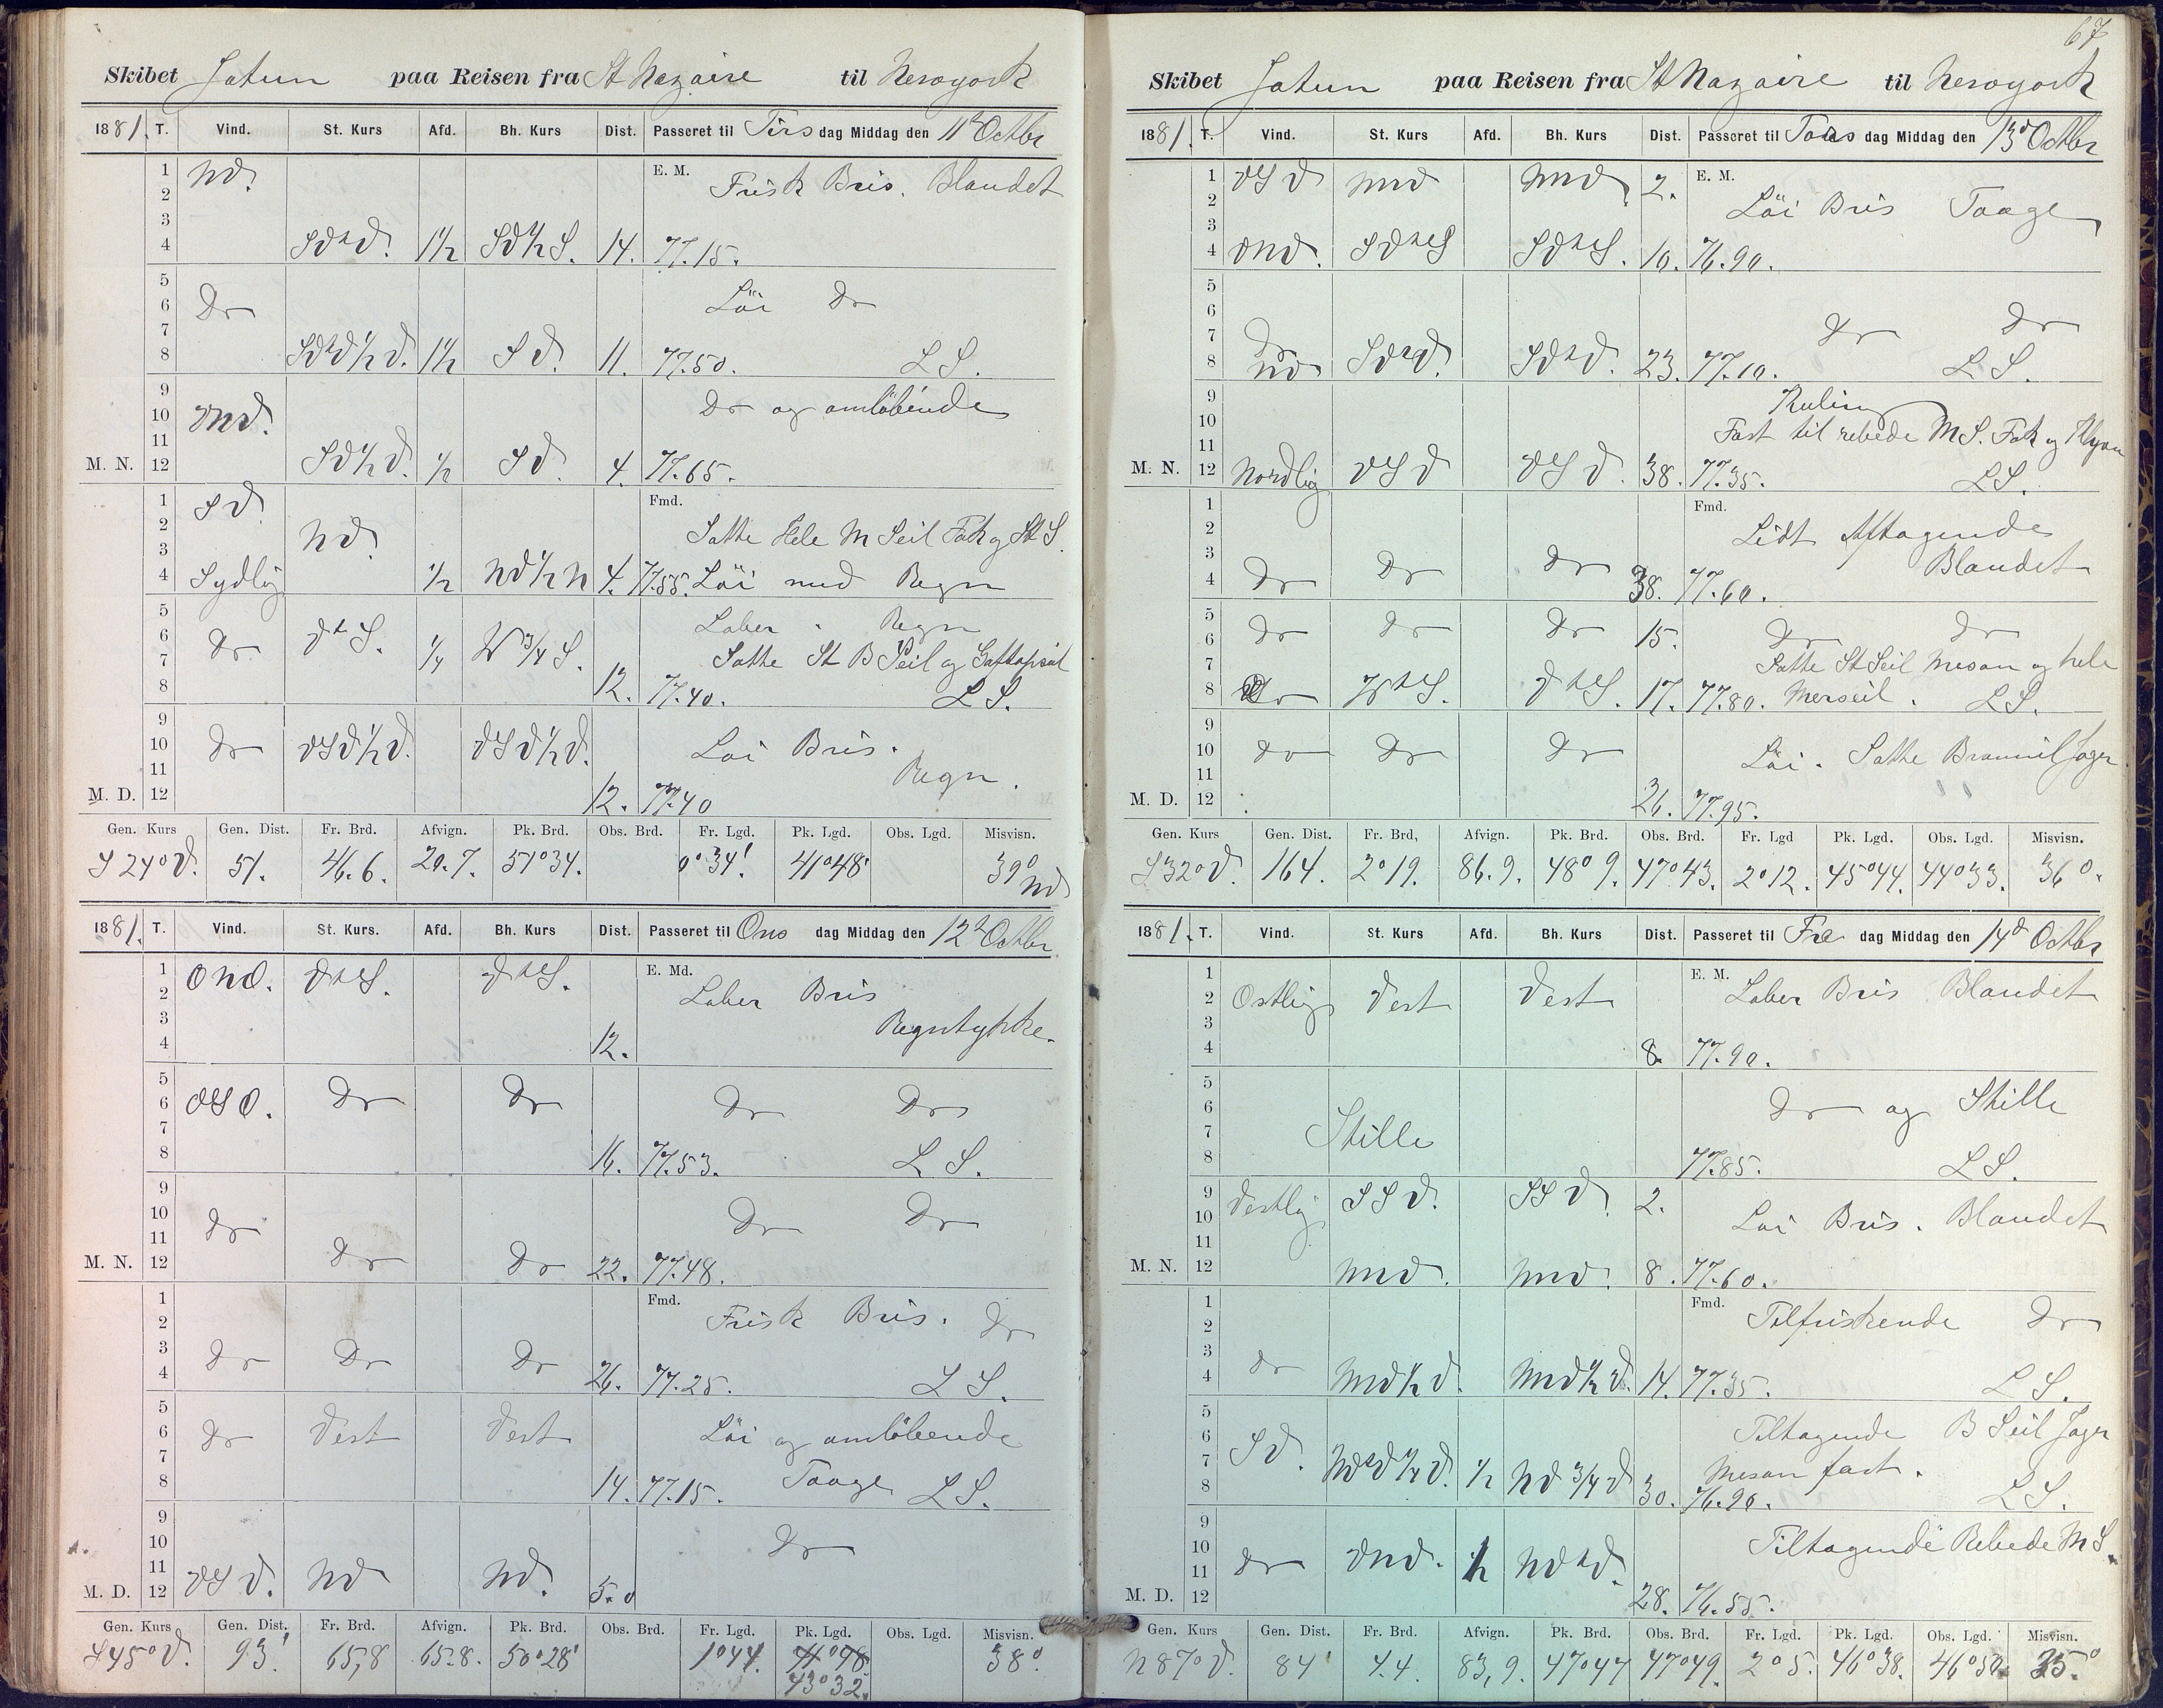 Skibet Jatun paa Reisen fra St Nazaire til Newyork
1881. T. Vind. St. Kurs Afd. Bh. Kurs Dist. Passeret til Tirs dag Middag den 11te Octbr
1 NV. E. M. Frisk Bris. Blandet
2
3
4 SVtV. 1½ SV½S. 14. 77.15.
5
6 Do Löi Do
7
8 SVtV½V. 1½ SV. 11. 77.50. L S.
9
10 VNV. Do og omløbende
11
M. N. 12 SV½V. ½ SV. 4. 77.65.
1 SV. Fmd.
2 NV. Satte Hele M Seil Fok og St S.
3
4 Sydlig ½ NV½N 4. 77.55. Löi med Regn
5 Laber Regn
6 Do VtS. ¼ W¾S. Satte St B Seil og Gaftopseil
7
8 12. 77.40. L S.
9
10 Do VSV½V. VSV½V. Löi Bris.
11 Regn.
M. D. 12 12. 77.40
Gen. Kurs Gen. Dist. Fr. Brd. Afvign. Pk. Brd. Obs. Brd. Fr. Lgd. Pk. Lgd. Obs. Lgd. Misvisn.
S 24° V. 51. 46.6. 20.7. 51°34. 0°34' 41°48' 39° NV
1881. T. Vind. St. Kurs. Afd. Bh. Kurs Dist. Passeret til Ons dag Middag den 12te Octbr
1 ONO. VtS. VtS. E. Md.
2 Laber Bris
3 Regntykke.
4 12.
5
6 OSO. Do Do Do Do
7
8 16. 77.53. L S.
9
10 Do Do Do
11
M. N. 12 Do Do 22. 77.48.
1 Fmd. Frisk Bris. Do
2
3 Do Do Do
4 26. 77.25. L S.
5
6 Do Vest Vest Löi og omløbende
7
8 14. 77.15. Taage L S.
9
10 Do
11
M. D. 12 VSV. NV NV. 5.0
Gen. Kurs Gen. Dist. Fr. Brd. Afvign. Pk. Brd. Obs. Brd. Fr. Lgd. Pk. Lgd. Obs. Lgd. Misvisn.
S 45° V. 93' 65,8 65.8. 50°28' 1°44. 38°.
43°32.
67
Skibet Jatun paa Reisen fra St Nazaire til Newyork
1881. T. Vind. St. Kurs Afd. Bh. Kurs Dist. Passeret til Tors dag Middag den 13d Octbr
1 VSV NNV NNV 2. E. M.
2 Löi Bris Taage
3
4 VNV. SVtS SVtS. 10. 76.90.
5
6
7 Do Do Do
8 NV SVtV. SVtV. 23. 77.10. L S.
9 Kuling
10 Fast til rebede M S. Fok og
11
M. N. 12 Nordlig VSV VSV. 38. 77.35. L S.
1 Fmd.
2 Lidt Aftagende
3 Blandet
4 Do Do Do 38. 77.60.
5
6 Do Do Do 15. Do Do
7 Satte St Seil Mesan og hele
8 Do VtS. VtS. 17. 77.80. Merseil. L S.
9
10 Do Do Do Löi. Satte Bramseil Jager
11
M. D. 12 26. 77.95.
Gen. Kurs Gen. Dist. Fr. Brd, Afvign. Pk. Brd. Obs. Brd. Fr. Lgd Pk. Lgd. Obs. Lgd. Misvisn.
S 32° V. 164. 2°19. 86.9. 48°9. 47°43. 2°12. 45°44. 44°33. 36°.
1881. T. Vind. St. Kurs Afd. Bh. Kurs Dist. Passeret til Fre dag Middag den 14d Octbr
1 E. M. Laber Bris Blandet
2 Ostlig Vest Vest
3
4 8. 77.90.
5
6 Do og Stille
7 Stille
8 77.85. L S.
9 Vestlig SSV. SSV. 2.
10 Löi Bris. Blandet
11
M. N. 12 NNV. NNV. 8. 77.60.
1 Fmd. Tilfriskende Do
2
3
4 Do NNV½V. NNV½V. 14. 77.35. L S.
5
6 Tiltagende B Seil Jager
7 SV. ½ NV¾V Mesan fast.
8 30. 76.90. L S.
9
10 Do VNV. ½ NVtV. Tiltagende Rebede M S.
11
M. D. 12 28. 76.55.
Gen. Kurs Gen. Dist. Fr. Brd. Afvign. Pk. Brd. Obs. Brd. Fr. Lgd. Pk. Lgd. Obs. Lgd. Misvisn.
N 87° V. 84' 4.4. 83,9. 47°47 47°49. 2°5. 46°38. 46°50. 35.°